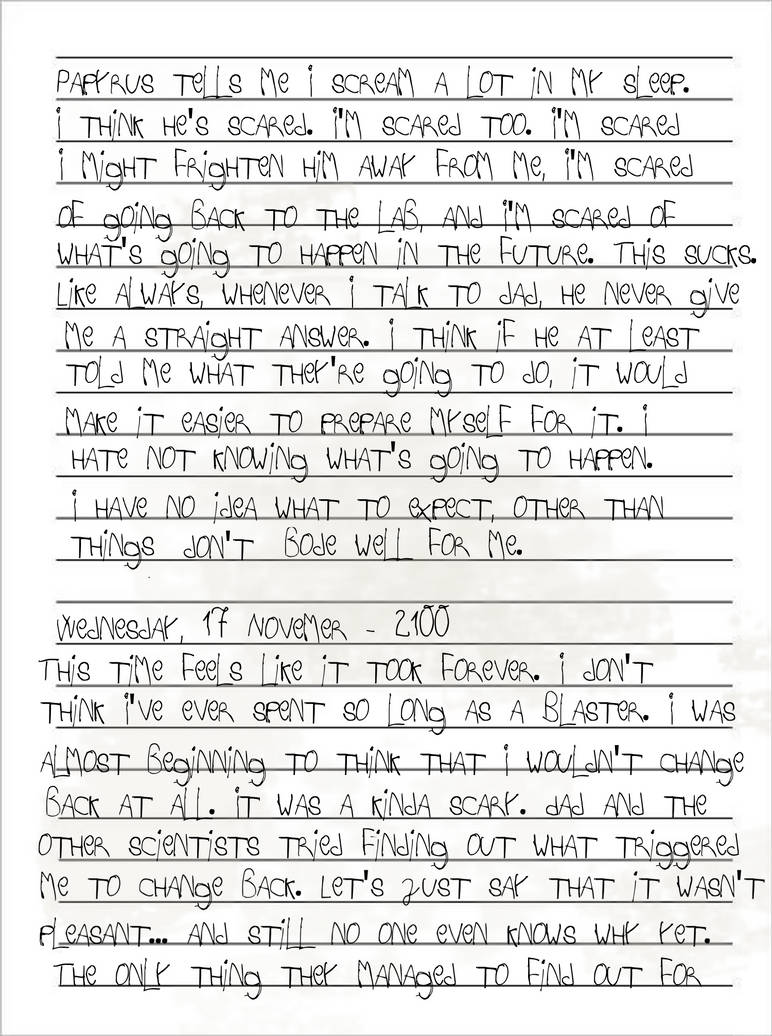 PAPYRUS TELLS ME I SCREAM A LOT IN MY SLEEP.
I THINK HE'S SCARED. I'M SCARED TOO. I'M SCARED
I MIGHT FRIGHTEN HIM AWAY FROM ME, I'M SCARED
OF GOING BACK TO THE LAB, AND I'M SCARED OF
WHAT'S GOING TO HAPPEN IN THE FUTURE. THIS SUCKS.
LIKE ALWAYS, WHENEVER I TALK TO DAD, HE NEVER GIVE
ME A STRAIGHT ANSWER. I THINK IF HE AT LEAST
TOLD ME WHAT THEY'RE GOING TO DO, IT WOULD
MAKE IT EASIER TO PREPARE MYSELF FOR IT. I
HATE NOT KNOWING WHAT'S GOING TO HAPPEN.
I HAVE NO IDEA WHAT TO EXPECT, OTHER THAN
THINGS DON'T BODE WELL FOR ME.
WEDNESDAY, 17 NOVEMER - 2100
THIS TIME FEELS LIKE IT TOOK FOREVER. I DON'T
THINK I'VE EVER SPENT SO LONG AS A BLASTER. I WAS
ALMOST BEGINNING TO THINK THAT I WOULDN'T CHANGE
BACK AT ALL. IT WAS A KINDA SCARY. DAD AND THE
OTHER SCIENTISTS TRIED FINDING OUT WHAT TRIGGERED
ME TO CHANGE BACK. LET'S JUST SAY THAT IT WASN'T
PLEASANT... AND STILL NO ONE EVEN KNOWS WHY YET.
THE ONLY THING THEY MANAGED TO FIND OUT FOR